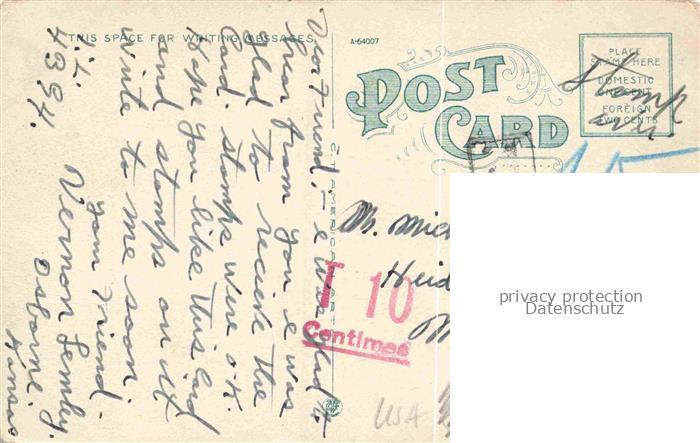 THIS SPACE FOR WRITING MESSAGES
A-64007
POST
CARD
PLACE
STAMP HERE
DOMESTIC
ONE CENT
FOREIGN
TWO CENTS
Stamp
over.
Dear Friend:- I was glad to
hear from you I was
glad to recieve the
Card. stamps were o.K.
Hope you like this card
and stamps on it
write to me soon.
Your Friend.
Vernon Lemley.
Osborne,
Kansas
4394.
M.
Heid
M
T 10
Centimes
USA
privacy protection
Datenschutz